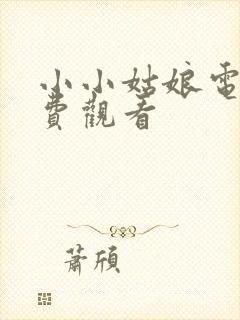 小小姑娘電
費觀看
蕭頎